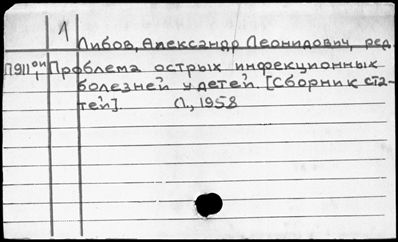 1
Либов, Александр Леонидович, ред.
П911он, Проблема острых инфекционных
болезней у детей. [Сборник ста-
тей]. Л., 1958